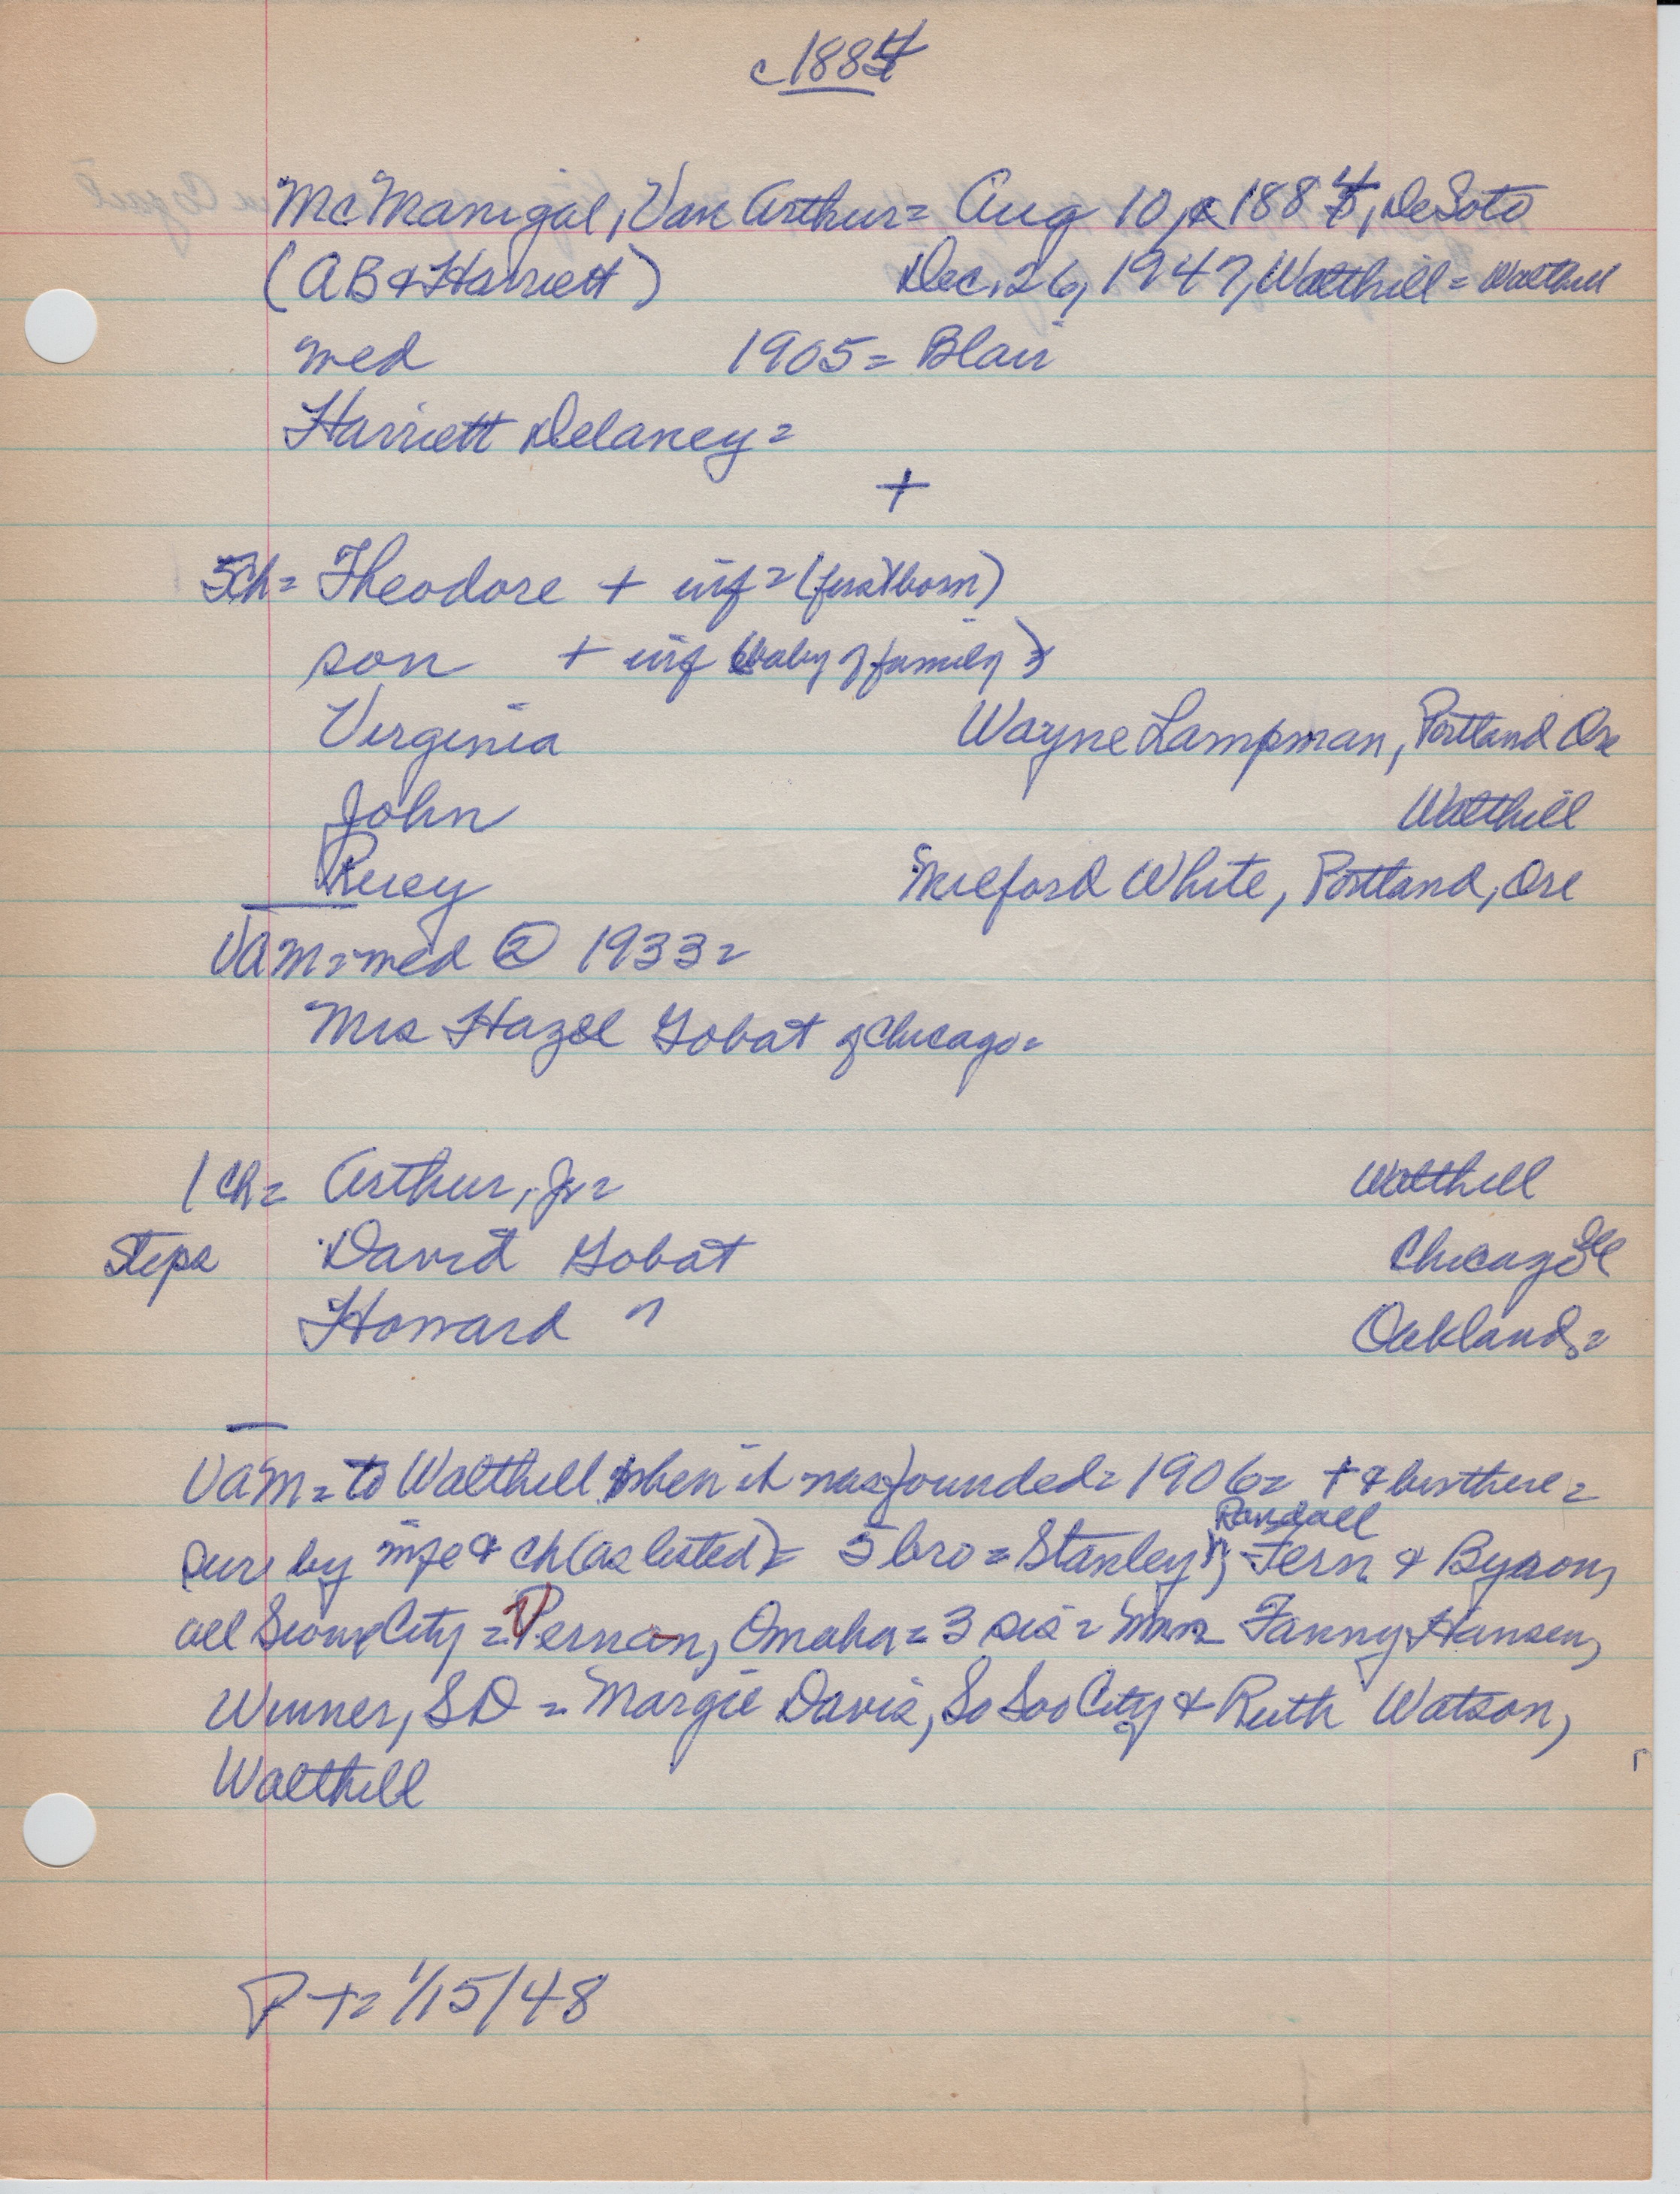 c 1884
McManigal, Van Arthur = Aug 10, c 1884, DeSoto
(AB & Harriett) Dec. 26, 1947, Walthill = Walthill
med 1905 = Blair
Harriett Delaney =
+
5 ch = Theodore + inf = (firstborn)
son + inf (baby of family)
Virginia Wayne Lampman, Portland Ore
John Walthill
Milford White, Portland, Ore
VAM = med ② 1933 =
Mrs Hazel Gobat of Chicago =
1 ch = Arthur, Jr = Walthill
Steps David Gobat Chicago Ill
Howard " Oakland =
VAM = to Walthill when it was founded = 1906 = + & bur there =
Randall
surv by wife & ch (as listed) = 5 bro = Stanley, Fern & Byron,
all Sioux City = Vernan, Omaha = 3 sis = Mmes Fanny Hansen,
Winner, SD = Margie Davis, So Soo City & Ruth Watson,
Walthill
P + = 1/15/48